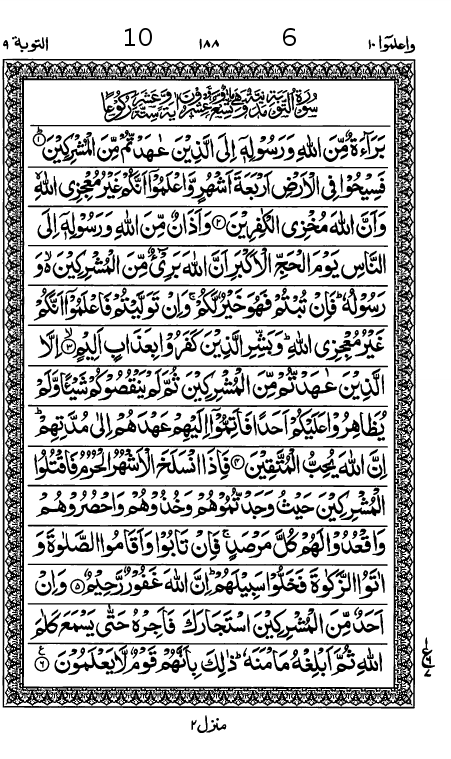 واعلموٓا ۱۰ 6 ۱۸۸ 10 التوبة ۹
سُوْرَةُ التَّوْبَةِ مَدَنِيَّةٌ
بَرَآءَةٌ مِّنَ اللّٰهِ وَرَسُوْلِهٖۤ اِلَى الَّذِيْنَ عٰهَدْتُّمْ مِّنَ الْمُشْرِكِيْنَ ۱
فَسِيْحُوْا فِى الْاَرْضِ اَرْبَعَةَ اَشْهُرٍ وَّاعْلَمُوْۤا اَنَّكُمْ غَيْرُ مُعْجِزِى اللّٰهِ
وَاَنَّ اللّٰهَ مُخْزِى الْكٰفِرِيْنَ ۲ وَاَذَانٌ مِّنَ اللّٰهِ وَرَسُوْلِهٖۤ اِلَى
النَّاسِ يَوْمَ الْحَجِّ الْاَكْبَرِ اَنَّ اللّٰهَ بَرِىْٓءٌ مِّنَ الْمُشْرِكِيْنَ ۙ وَ
رَسُوْلُهٗ ؕ فَاِنْ تُبْتُمْ فَهُوَ خَيْرٌ لَّكُمْ ۚ وَاِنْ تَوَلَّيْتُمْ فَاعْلَمُوْۤا اَنَّكُمْ
غَيْرُ مُعْجِزِى اللّٰهِ ؕ وَبَشِّرِ الَّذِيْنَ كَفَرُوْا بِعَذَابٍ اَلِيْمٍ ۙ ۳ اِلَّا
الَّذِيْنَ عٰهَدْتُّمْ مِّنَ الْمُشْرِكِيْنَ ثُمَّ لَمْ يَنْقُصُوْكُمْ شَيْـًٔا وَّلَمْ
يُظَاهِرُوْا عَلَيْكُمْ اَحَدًا فَاَتِمُّوْۤا اِلَيْهِمْ عَهْدَهُمْ اِلٰى مُدَّتِهِمْ ؕ
اِنَّ اللّٰهَ يُحِبُّ الْمُتَّقِيْنَ ۴ فَاِذَا انْسَلَخَ الْاَشْهُرُ الْحُرُمُ فَاقْتُلُوا
الْمُشْرِكِيْنَ حَيْثُ وَجَدْتُّمُوْهُمْ وَخُذُوْهُمْ وَاحْصُرُوْهُمْ
وَاقْعُدُوْا لَهُمْ كُلَّ مَرْصَدٍ ۚ فَاِنْ تَابُوْا وَاَقَامُوا الصَّلٰوةَ وَ
اٰتَوُا الزَّكٰوةَ فَخَلُّوْا سَبِيْلَهُمْ ؕ اِنَّ اللّٰهَ غَفُوْرٌ رَّحِيْمٌ ۵ وَاِنْ
اَحَدٌ مِّنَ الْمُشْرِكِيْنَ اسْتَجَارَكَ فَاَجِرْهُ حَتّٰى يَسْمَعَ كَلٰمَ
اللّٰهِ ثُمَّ اَبْلِغْهُ مَاْمَنَهٗ ؕ ذٰلِكَ بِاَنَّهُمْ قَوْمٌ لَّا يَعْلَمُوْنَ ۶
منزل ۲